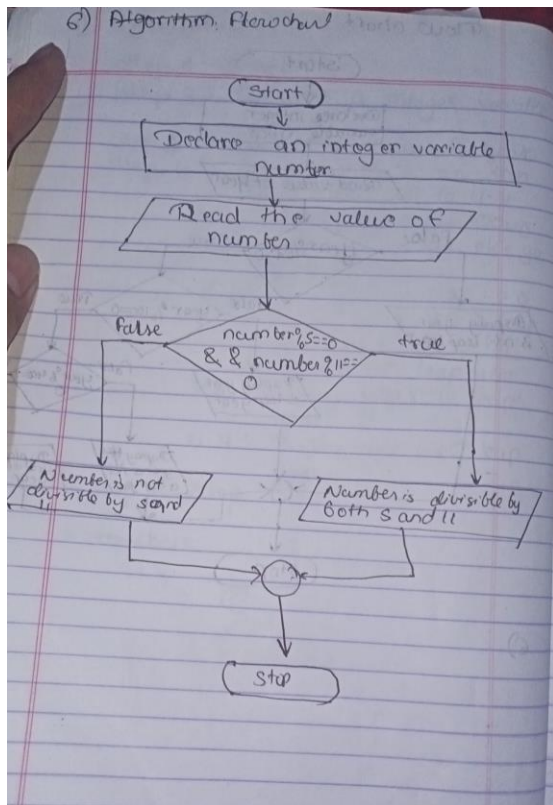 6) Algorithm. Flowchart
Start
Declare an integer variable
number
Read the value of
number
number%5==0
&& number%11==
0
false
true
Number is not
divisible by 5 and
11
Number is divisible by
both 5 and 11
Stop